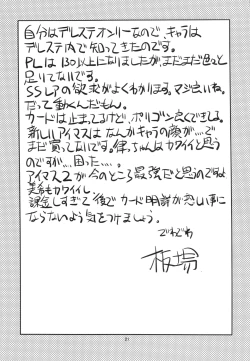 自分はデレステオンリーなので、キャラは
デレステ内で知ってきたのです。
PLは130以上になりましたが、まだまだ色々と
足りてないです。
SSレアの欲求がよくわかります。マジ良いね。
だって動くんだもん。
カードは止まってるけど、ポリゴン良くできてるし。
新しいアイマスはなんかキャラの顔が…で
まだ買ってないです。律っちゃんはカワイイと思う
のですが…困った…。
アイマス2が今のところ最強だと思うのですよ
カワイイし。
課金しすぎて後でカード明細が恐い事に
ならないよう気をつけましょう。
でわでわ
板場
21